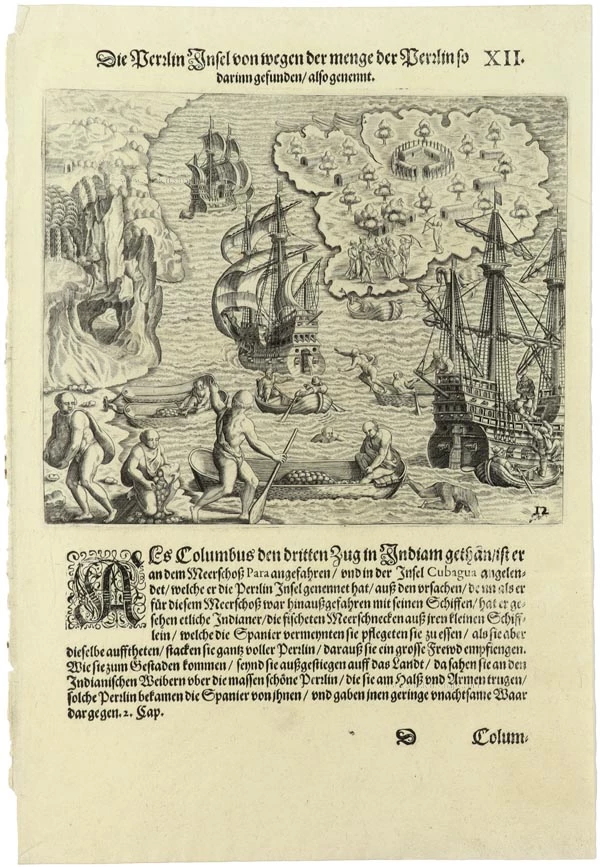 Die Perrlin Insel von wegen der menge der Perrlin so XII.
darinn gefunden / also genennt.
12
ALs Columbus den dritten Zug in Indiam gethan / ist er
an dem Meerschoß Para angefahren / vnd in der Insel Cubagua angelen-
det / welche er die Perlin Insel genennet hat / auß den vrsachen / denn als er
für diesem Meerschoß war hinaußgefahren mit seinen Schiffen / hat er ge-
sehen etliche Indianer / die fischeten Meerschnecken auß jren kleinen Schiff-
lein / welche die Spanier vermeynten sie pflegeten sie zu essen / als sie aber
dieselbe aufftheten / stacken sie gantz voller Perrlin / darauß sie ein grosse Frewd empfiengen.
Wie sie zum Gestaden kommen / seynd sie außgestiegen auff das Landt / da sahen sie an den
Indianischen Weibern vber die massen schöne Perrlin / die sie am Halß vnd Armen trugen /
solche Perrlin bekamen die Spanier von jhnen / vnd gaben jnen geringe vnachtsame Waar
dargegen. 2. Cap.
D Colum-